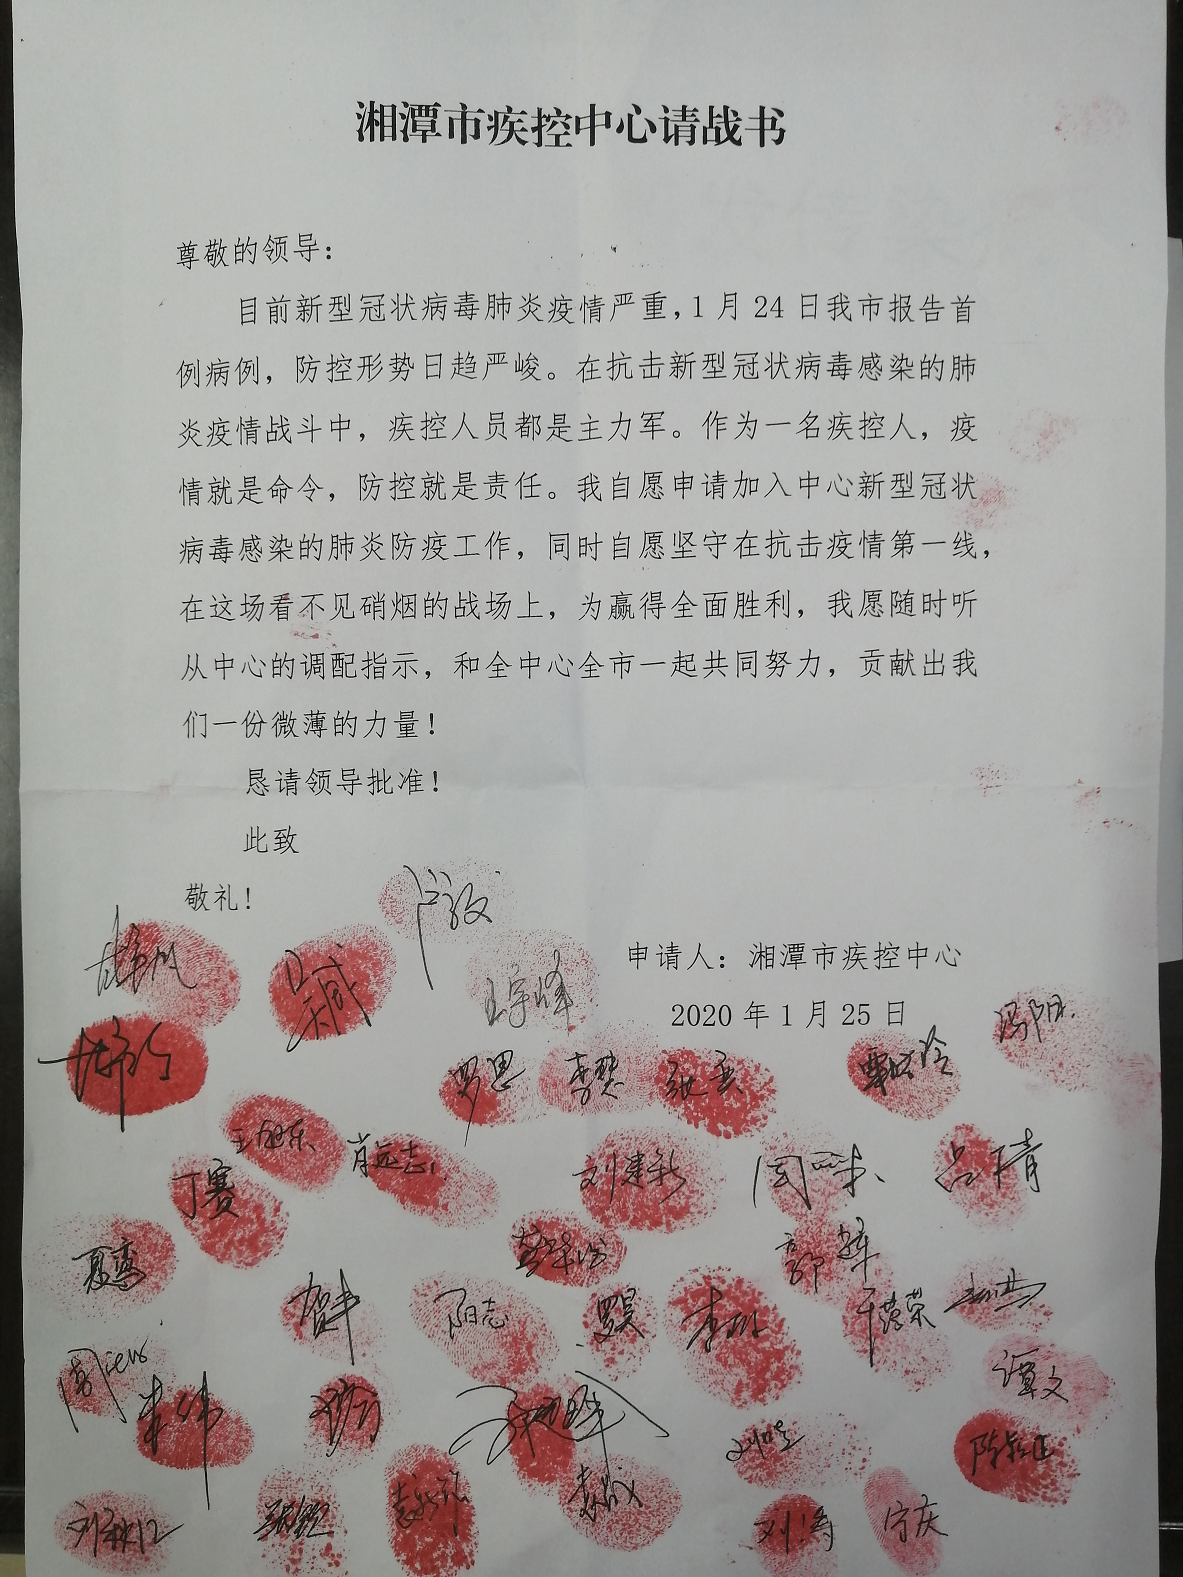 湘潭市疾控中心请战书
尊敬的领导：
目前新型冠状病毒肺炎疫情严重，1月24日我市报告首
例病例，防控形势日趋严峻。在抗击新型冠状病毒感染的肺
炎疫情战斗中，疾控人员都是主力军。作为一名疾控人，疫
情就是命令，防控就是责任。我自愿申请加入中心新型冠状
病毒感染的肺炎防疫工作，同时自愿坚守在抗击疫情第一线，
在这场看不见硝烟的战场上，为赢得全面胜利，我愿随时听
从中心的调配指示，和全中心全市一起共同努力，贡献出我
们一份微薄的力量！
恳请领导批准！
此致
敬礼！
申请人：湘潭市疾控中心
2020年1月25日
王宇峰
冯阳
罗思 李樊 张重
王旭东 肖远志
丁赛 刘建新
吕晴
阳志
谭文
朱伟
刘涛 宁庆